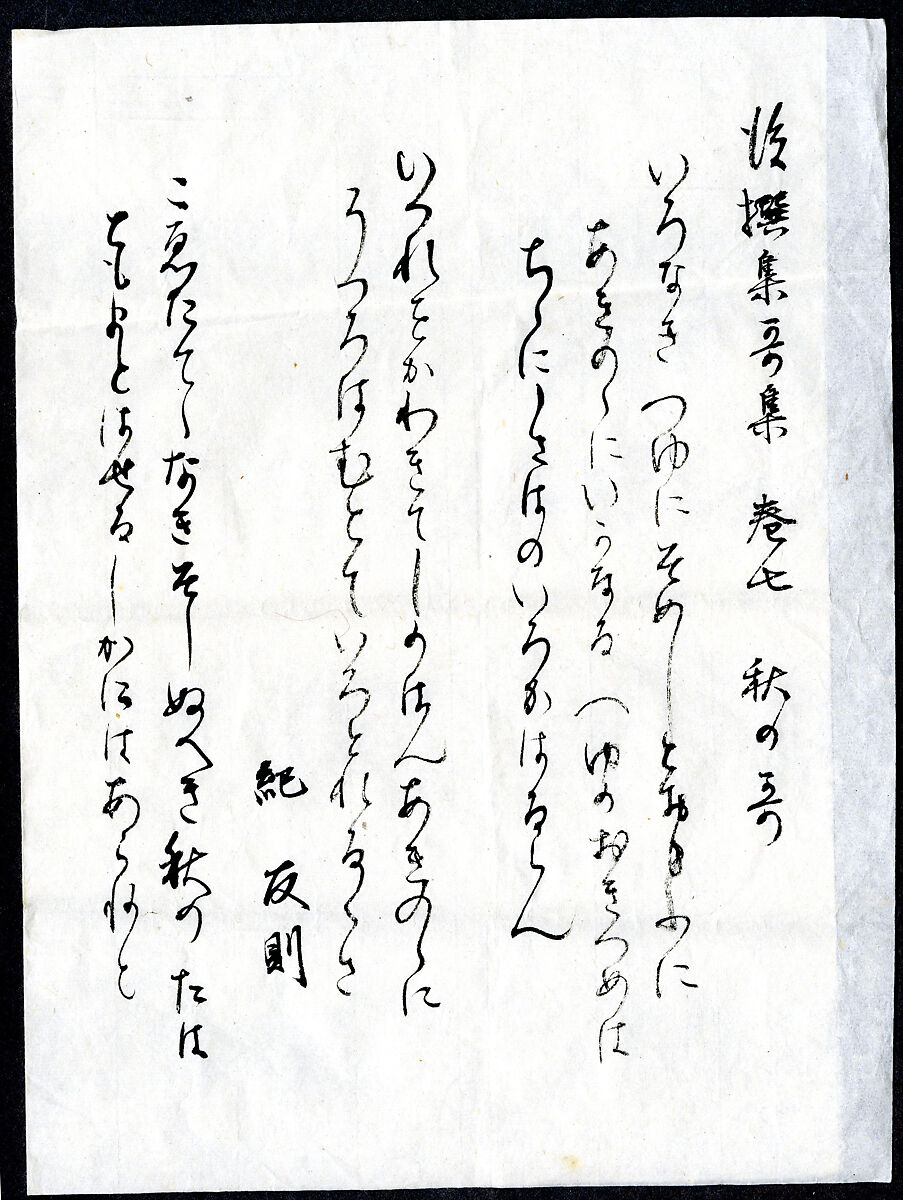 後撰集哥集　巻七　秋の哥
いろなき つゆにそめしとおもふに
あきのゝにいかなるつゆのおきつめは
ちゝにくさはのいろかはるらん
いつれをかわきてしのはんあきのゝに
うつろはむとていろとれるくさ
紀　友則
こゑたてゝなきそしぬへき秋の
ともまとはせるしかにはあらねと